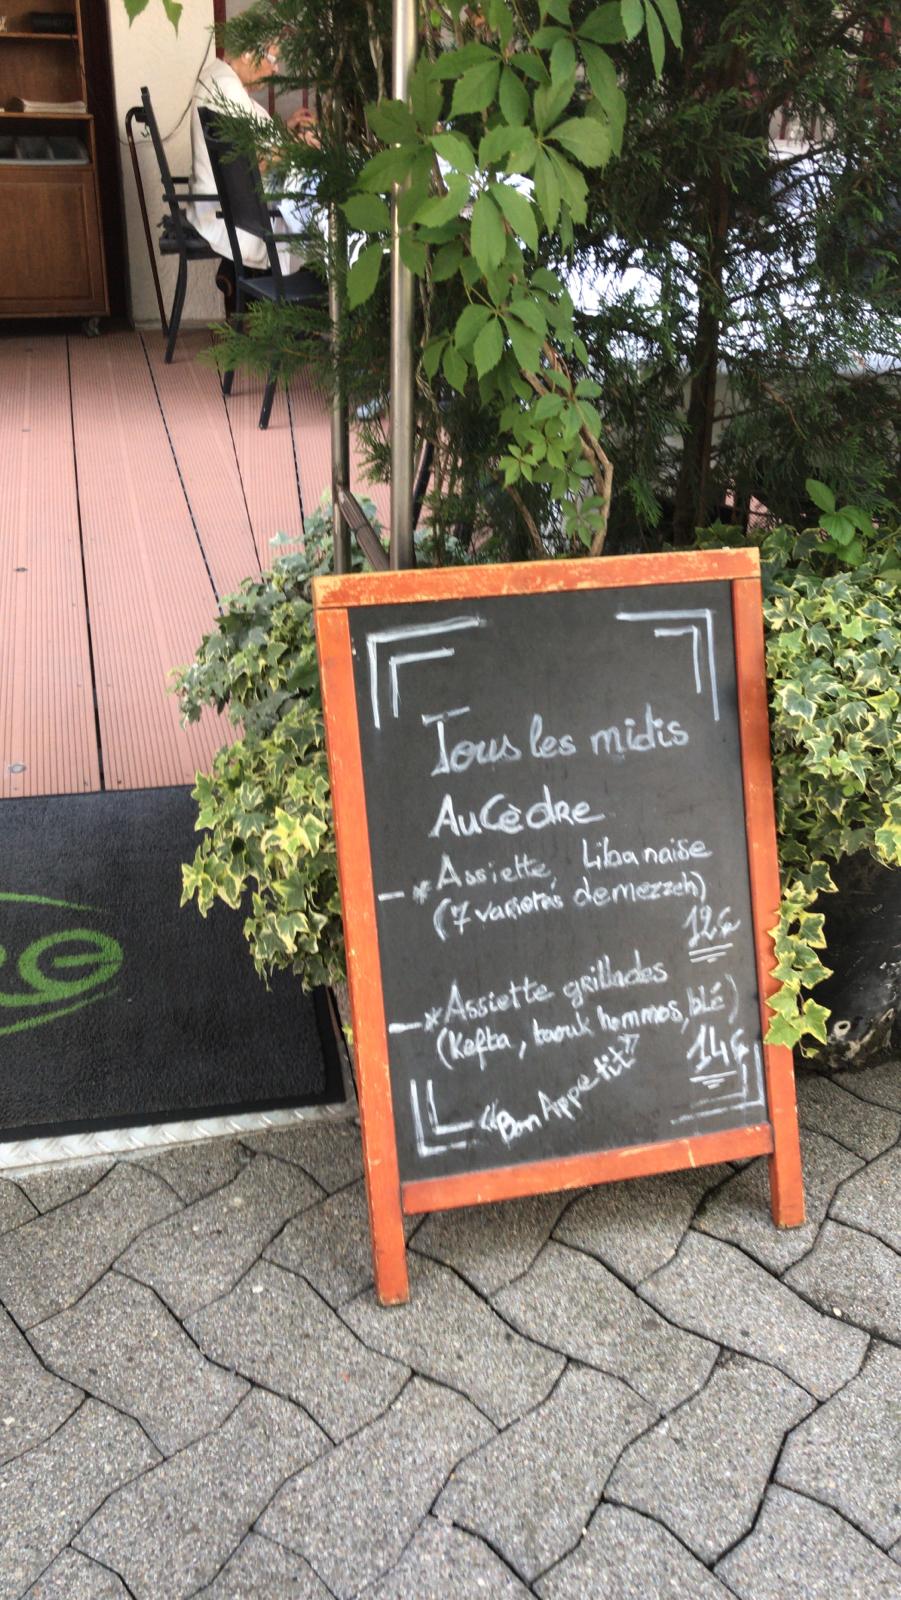 Tous les midis
Au Cèdre
- * Assiette Libanaise
(7 varietés de mezzeh)
12€
- * Assiette grillades
(Kefta, taouk hommos, blé)
14€
"Bon Appetit"
re